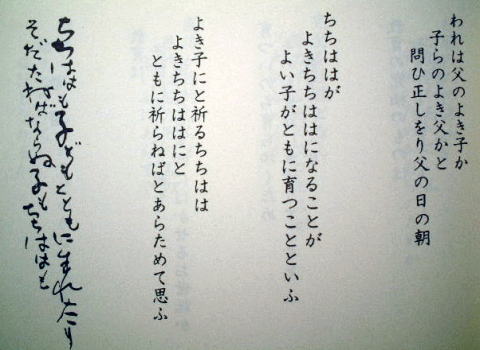 われは父のよき子か
子らのよき父かと
問ひ正しをり父の日の朝
ちちははが
よきちちははになることが
よい子がともに育つことといふ
よき子にと祈るちちはは
よきちちははにと
ともに祈らねばとあらためて思ふ
ちちはゝも子どもとともに生れたり
そだたねばならぬ子もちちははも